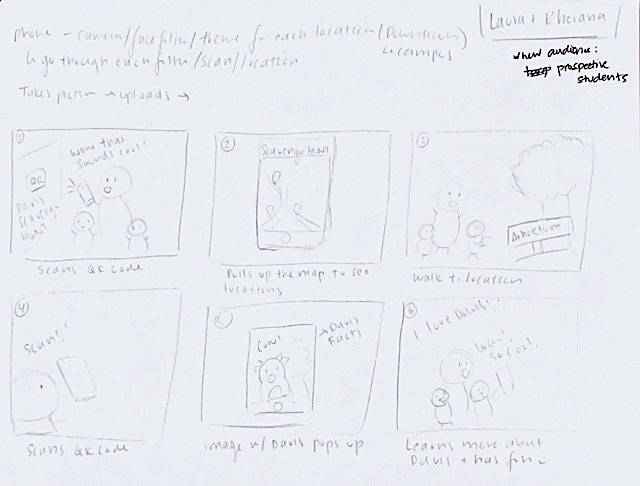 phone - camera/face filter/theme for each location (Downtown
campus)
↳ go through each filter/scan/location
Takes picture → uploads →
Laura +
audience:
prospective
students
①
Wow that
sounds cool!
QR
DAVIS
SCAVENGER
HUNT
Scans QR code
②
Scavenger Hunt
Pulls up the map to see
locations
③
Arboretum
Walk to location
④
Scan!!
Scans QR code
Cow!
→ Davis
Facts
image w/ Davis pops up
⑥
I love Davis!!
Learns more about
Davis + has fun